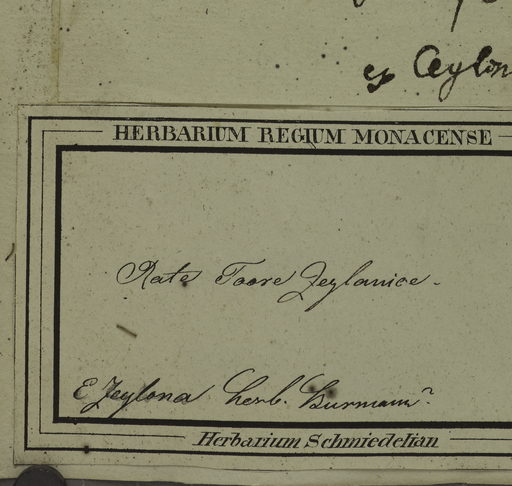 ex Ceylon
HERBARIUM REGIUM MONACENSE
Rate Toore Zeylanice.
E Zeylona herb. Burmann?
Herbarium Schmiedelian